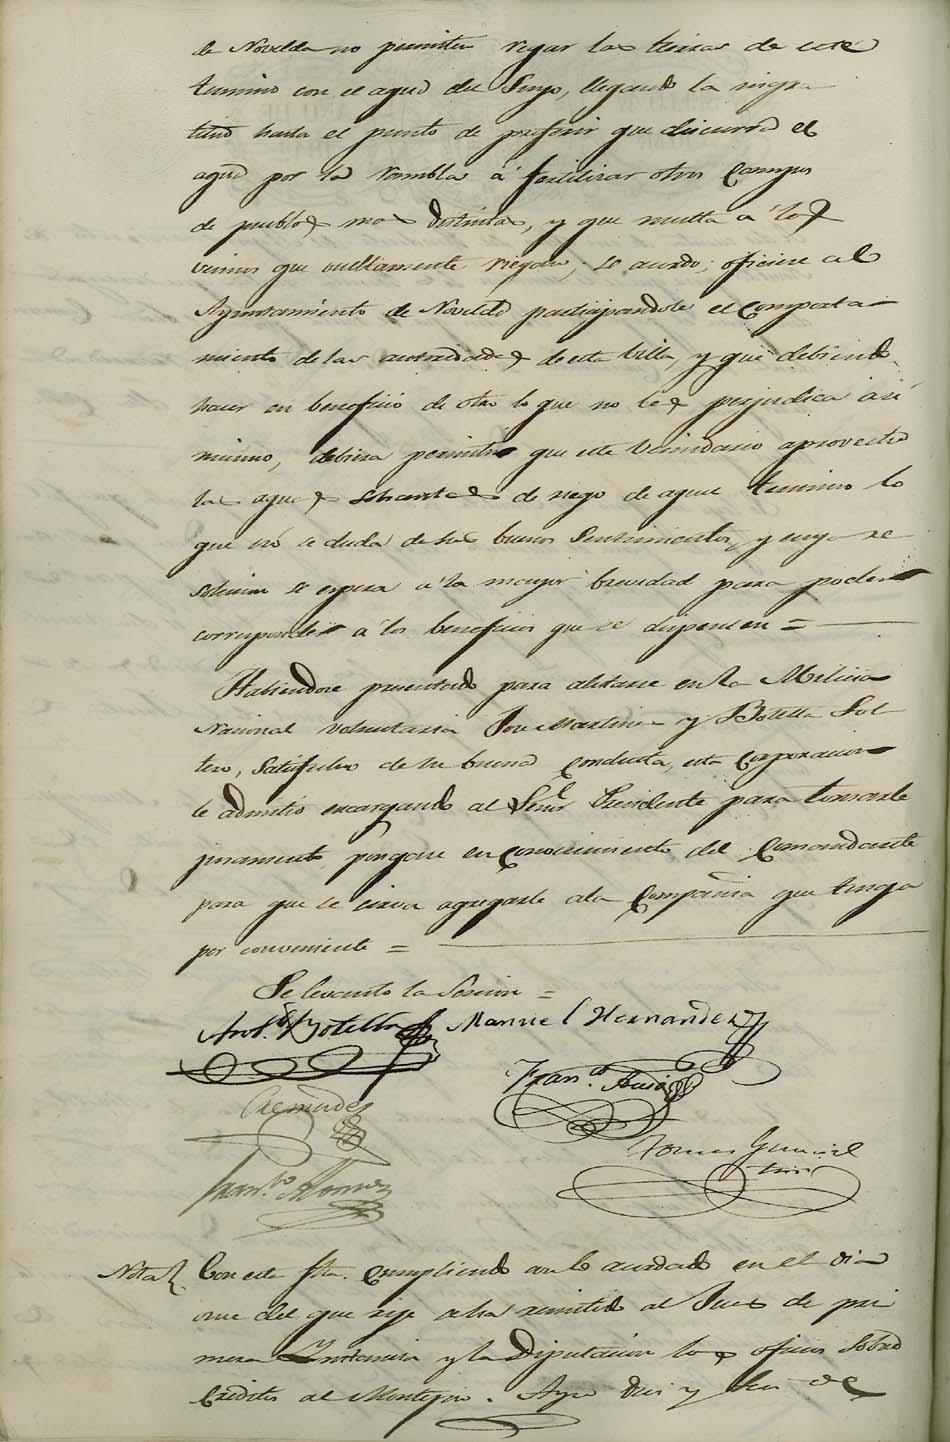 de Novelda no permiten regar las tierras de este
termino con el agua del Suyo, llegando la ingra
titud hasta el punto de preferir que discurra el
agua por la rambla á fertilizar otros campos
de pueblos mas distintos, y que multa a los
vecinos que ocultamente riegan; se acordo; oficiese al
Ayuntamiento de Novelda participandole el comporta
miento de las autoridades de esta Villa, y que debiendo
hacer en beneficio de otro lo que no les perjudica asi
mismo, debiera permitir que este vecindario aproveche
las aguas sobrantes de riego de aquel termino lo
que no se duda de sus buenos sentimientos, y cuya re
solucion se espera á la mayor brevedad para poder
corresponder á los beneficios que se dispensen =
Habiendose presentado para alistarse en la Milicia
Nacional voluntaria Jose Martinez y Botella Sol
tero, satisfecho de su buena conducta, esta corporacion
le admitio encargando al Señor Presidente para tomarle
juramento, pongase en conocimiento del Comandante
para que se sirva agregarle ala Compañia que tenga
por conveniente =
Se levanto la Sesion =
Ant.º Botella Manuel Hernandez
Fran.co
Cremades
Tomas
Fran.co Alonso
Nota Con esta fha. cumpliendo con lo acordado en el dia
once del que rije se ha remitido al Juez de pri
mera Instancia y la Diputacion los oficios sobre
Creditos al Montepio. Aspe diez y seis de